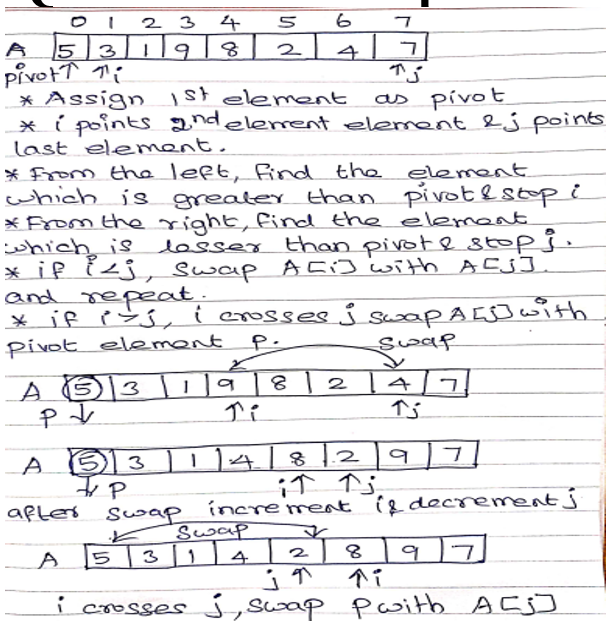 0 1 2 3 4 5 6 7
A 5 3 1 9 8 2 4 7
pivot↑ ↑i ↑j
* Assign 1st element as pivot
* i points 2nd element element & j points
last element.
* From the left, find the element
which is greater than pivot & stop i
* From the right, find the element
which is lesser than pivot & stop j.
* if i<j, swap A[i] with A[j].
and repeat.
* if i>j, i crosses j swap A[j] with
pivot element P. swap
A 5 3 1 9 8 2 4 7
P ↓ ↑i ↑j
A 5 3 1 4 8 2 9 7
↓ P i↑ ↑j
after swap increment i & decrement j
swap
A 5 3 1 4 2 8 9 7
j ↑ ↑i
i crosses j, swap P with A[j]